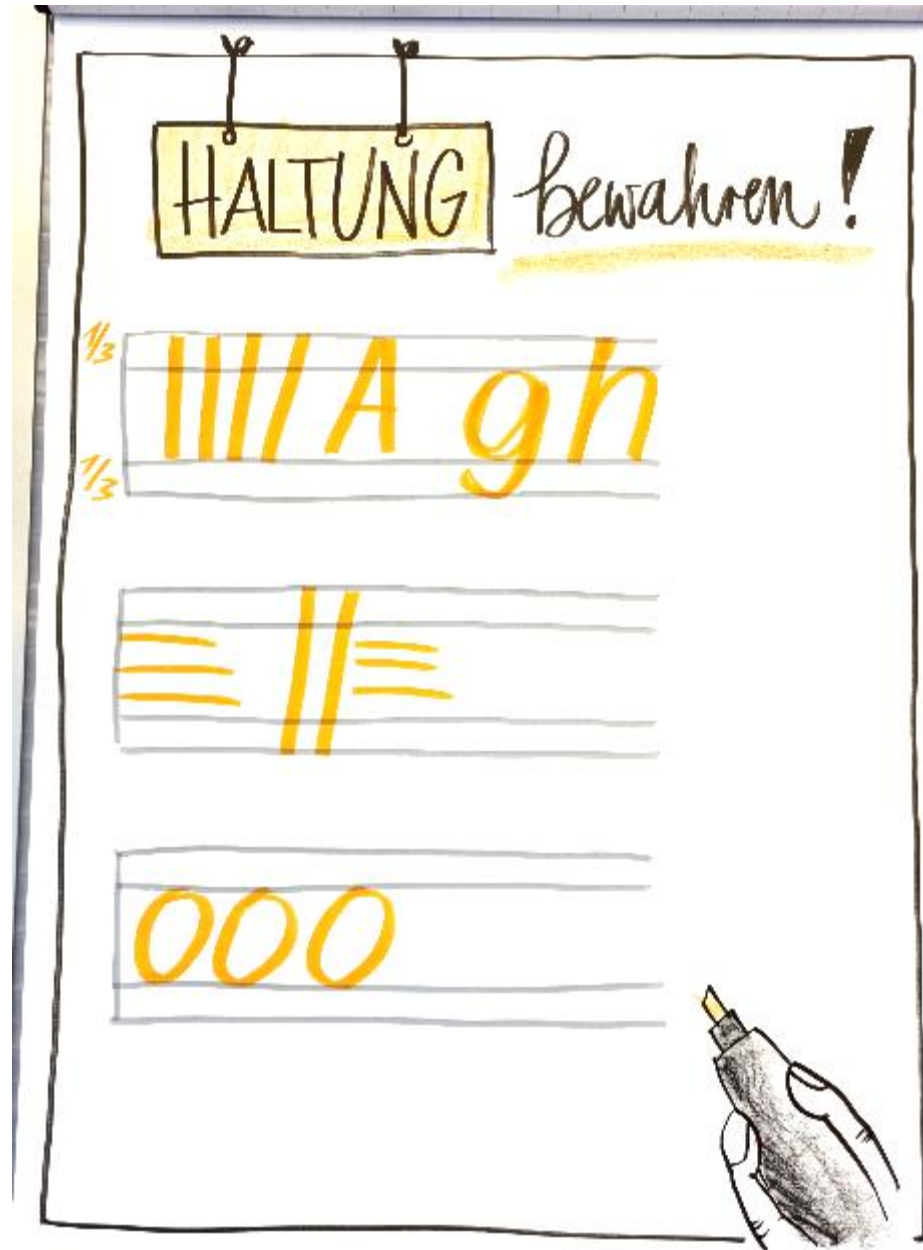 HALTUNG bewahren!
1/3
A g h
1/3
OOO